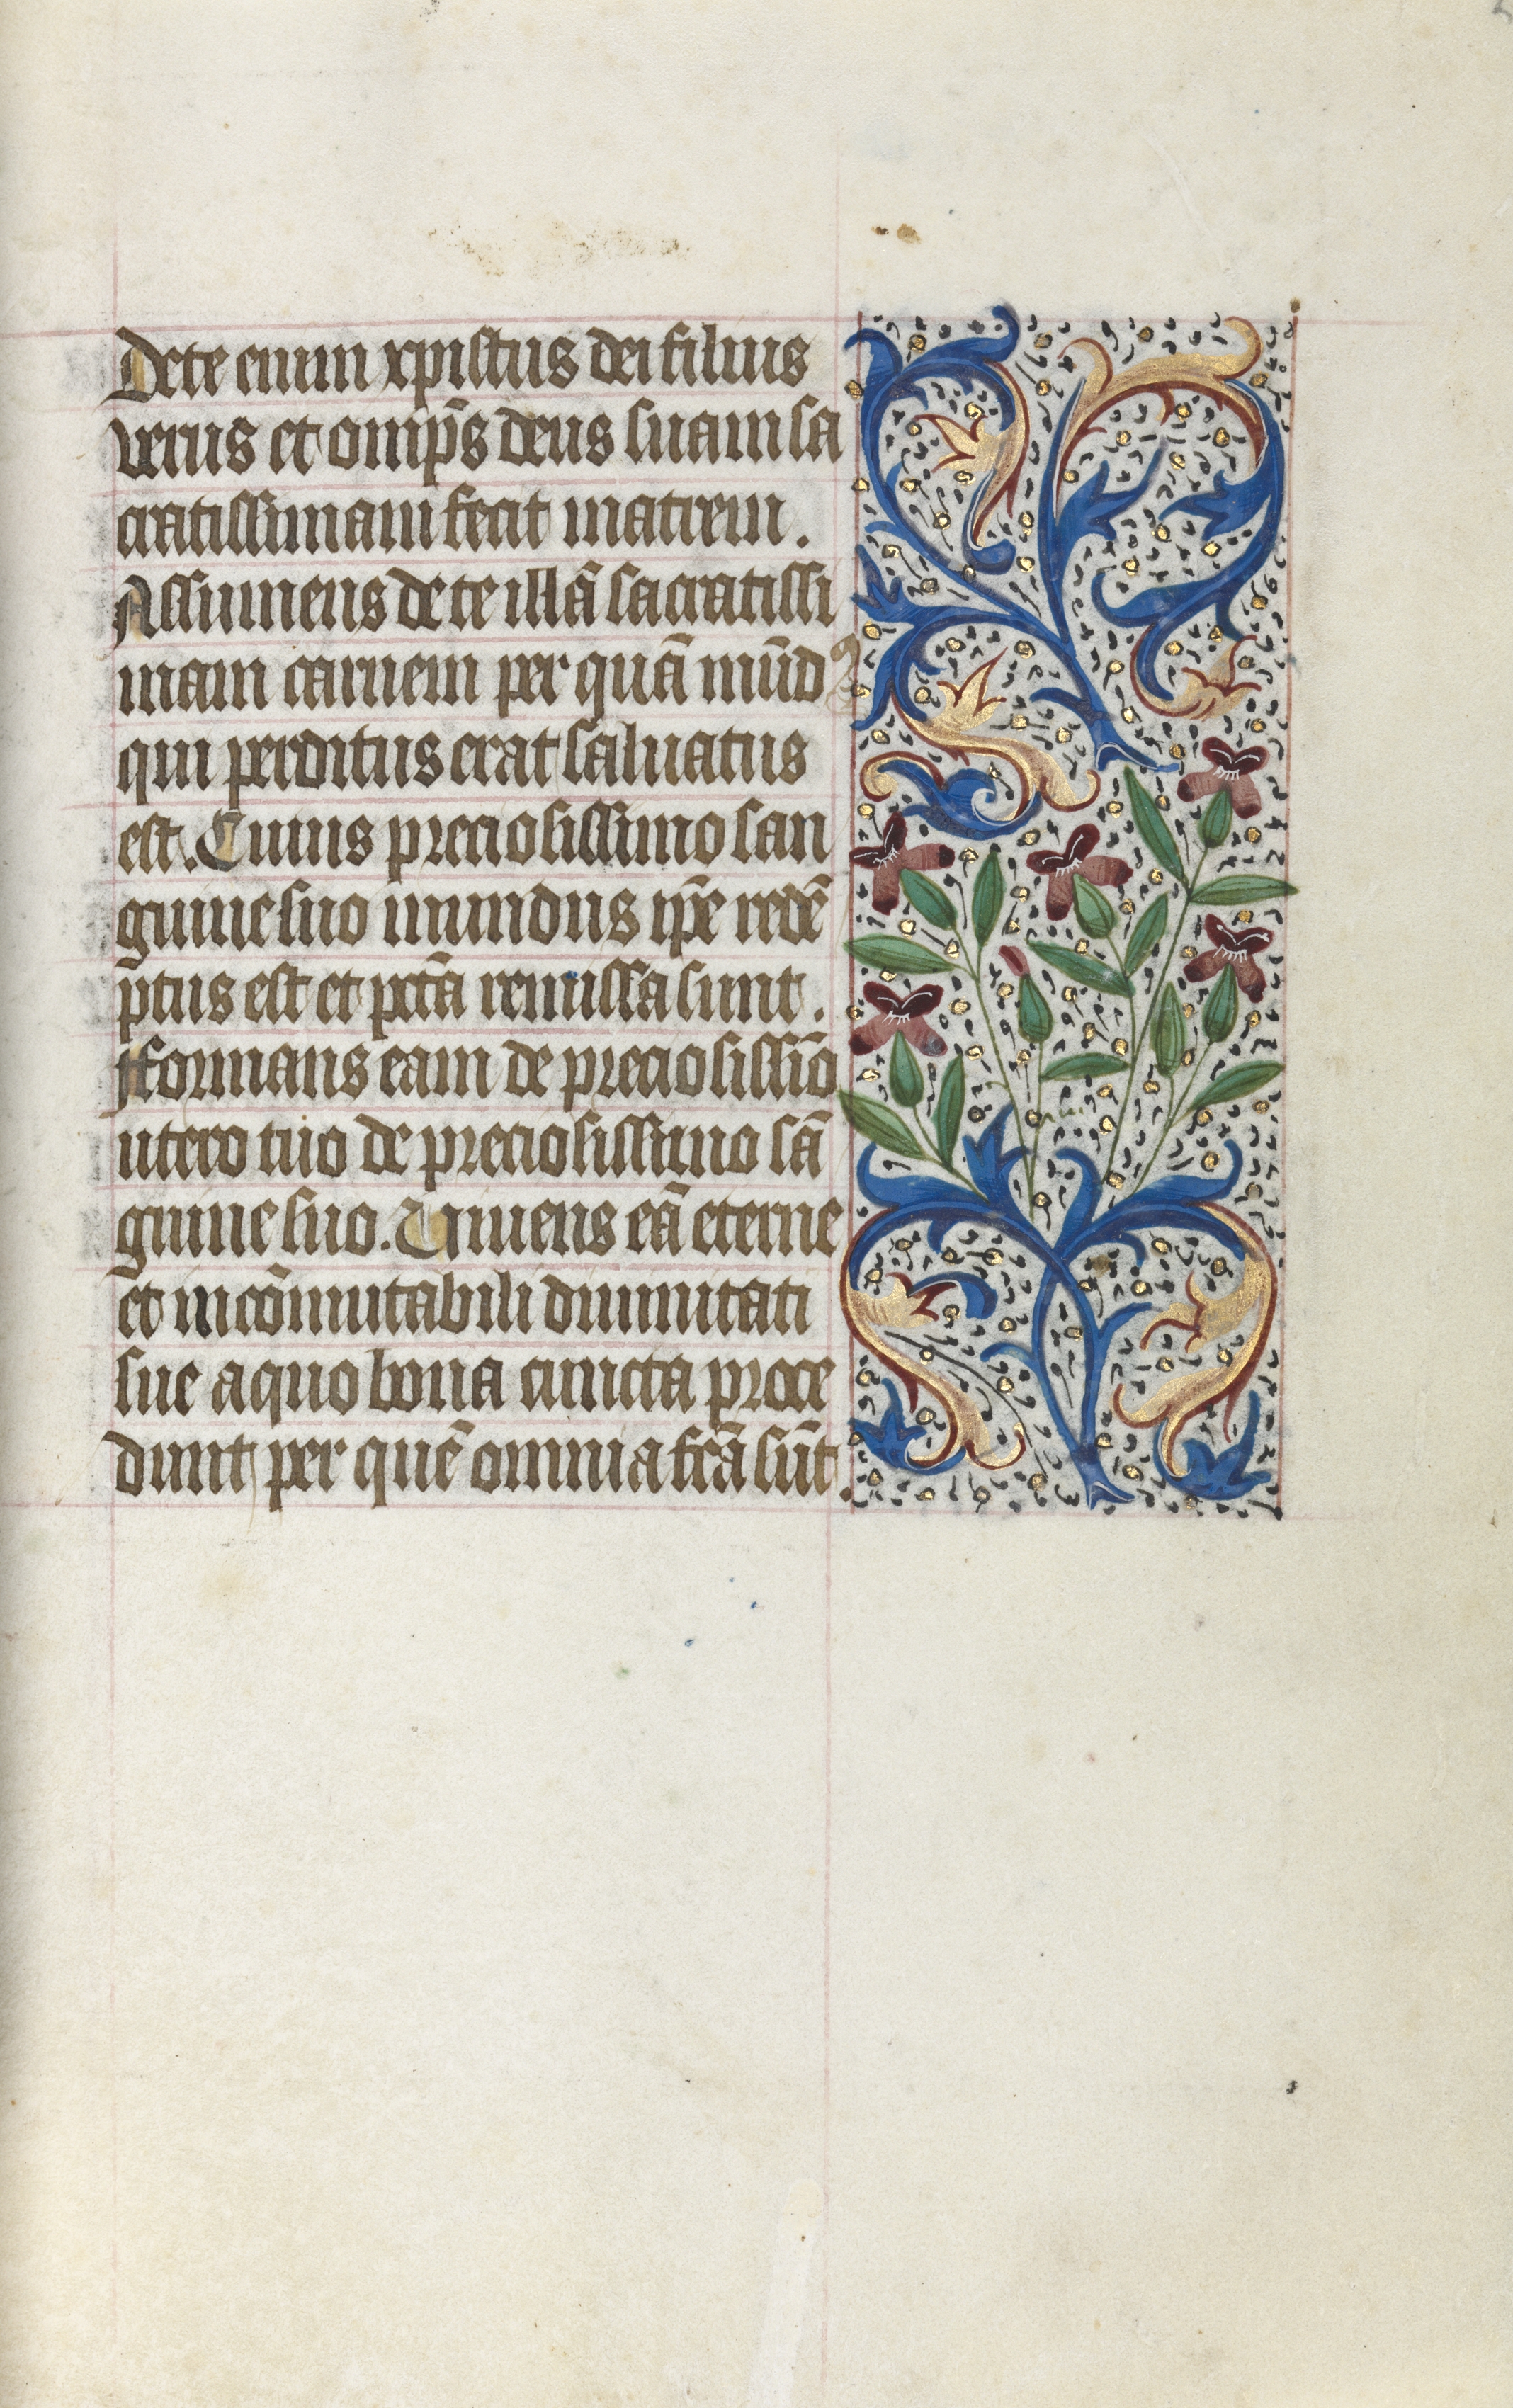 De te enim xpistus dei filius
verus et omp̄s deus suam sa
cratissimam fecit matrem.
Assumens de te illā sacratissi
mam carnem per quā mūdꝰ
qui perditus erat saluatus
est. Cuius preciosissimo san
guine suo mundus ip̄e redē
ptus est et pctā remissa sunt.
Formans eam de preciosissīo
utero tuo de preciosissimo sā
guine suo. Uniuens eā eterne
et incōmutabili diuinitati
sue a quo bona cuncta proce
dunt per quē omnia fcā sūt.